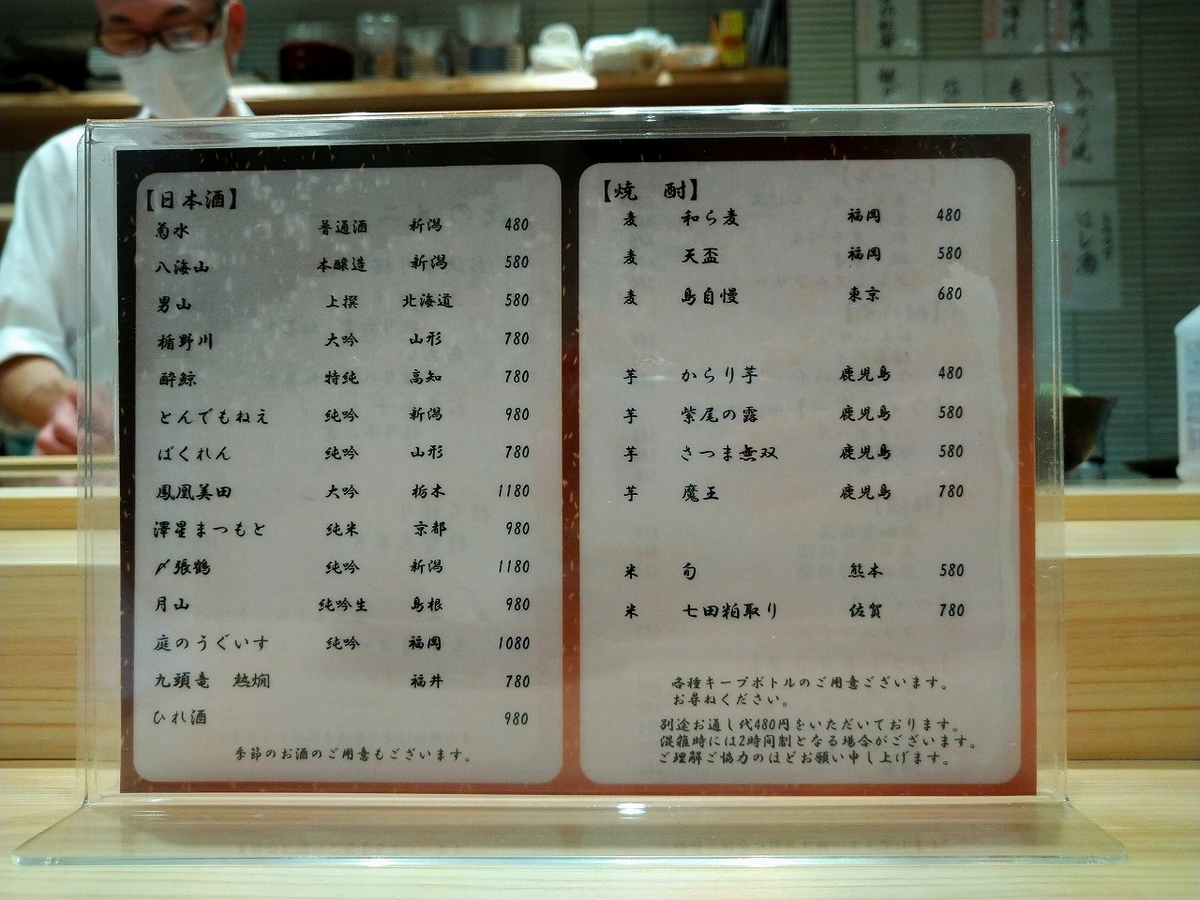 【日本酒】
菊水 普通酒 新潟 480
八海山 本醸造 新潟 580
男山 上撰 北海道 580
楯野川 大吟 山形 780
酔鯨 特純 高知 780
とんでもねえ 純吟 新潟 980
ばくれん 純吟 山形 780
鳳凰美田 大吟 栃木 1180
澤星まつもと 純米 京都 980
〆張鶴 純吟 新潟 1180
月山 純吟生 島根 980
庭のうぐいす 純吟 福岡 1080
九頭竜 熱燗 福井 780
ひれ酒 980
季節のお酒のご用意もございます。
【焼 酎】
麦 和ら麦 福岡 480
麦 天盃 福岡 580
麦 島自慢 東京 680
芋 からり芋 鹿児島 480
芋 紫尾の露 鹿児島 580
芋 さつま無双 鹿児島 580
芋 魔王 鹿児島 780
米 旬 熊本 580
米 七田粕取り 佐賀 780
各種キープボトルのご用意ございます。
お尋ねください。
別途お通し代480円をいただいております。
混雑時には2時間制となる場合がございます。
ご理解ご協力のほどお願い申し上げます。